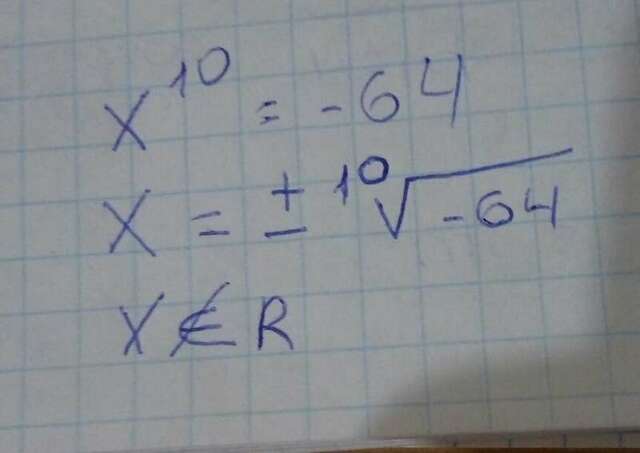 x¹⁰ = -64
x = ± ¹⁰√-64
x ∉ R